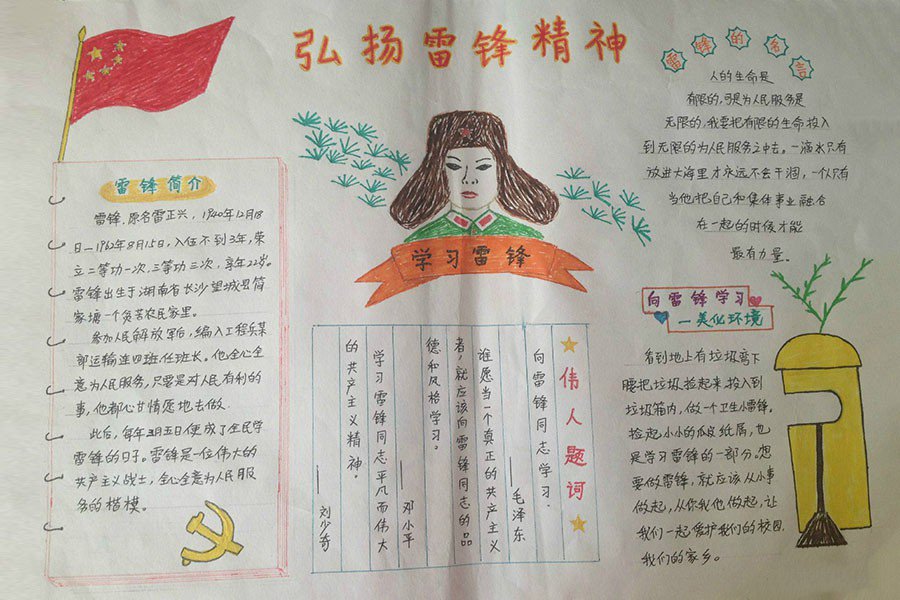 弘扬雷锋精神
雷锋简介
雷锋,原名雷正兴,1940年12月18
日—1962年8月15日,入伍不到3年,荣
立二等功一次,三等功三次,享年22岁。
雷锋出生于湖南省长沙望城县简
家塘一个贫苦农民家里。
参加人民解放军后,编入工程兵某
部运输连四班任班长。他全心全
意为人民服务,只要是对人民有利的
事,他都心甘情愿地去做.
此后,每年三月五日便成了全民学
雷锋的日子。雷锋是一位伟大的
共产主义战士,全心全意为人民服
务的楷模。
学习雷锋
伟人题词
向雷锋同志学习.
——毛泽东
谁愿当一个真正的共产主义
者,就应该向雷锋同志的品
德和风格学习。
——邓小平
学习雷锋同志平凡而伟大
的共产主义精神。
——刘少奇
雷锋的名言
人的生命是
有限的,可是为人民服务是
无限的,我要把有限的生命投入
到无限的为人民服务之中去。一滴水只有
放进大海里才永远不会干涸,一个人只有
当他把自己和集体事业融合
在一起的时候才能
最有力量。
向雷锋学习
—美化环境
看到地上有垃圾弯下
腰把垃圾捡起来,投入到
垃圾箱内,做一个卫生小雷锋。
捡起小小的瓜皮纸屑,也
是学习雷锋的一部分。想
要做雷锋,就应该从小事
做起,从你我他做起,让
我们一起爱护我们的校园,
我们的家乡。